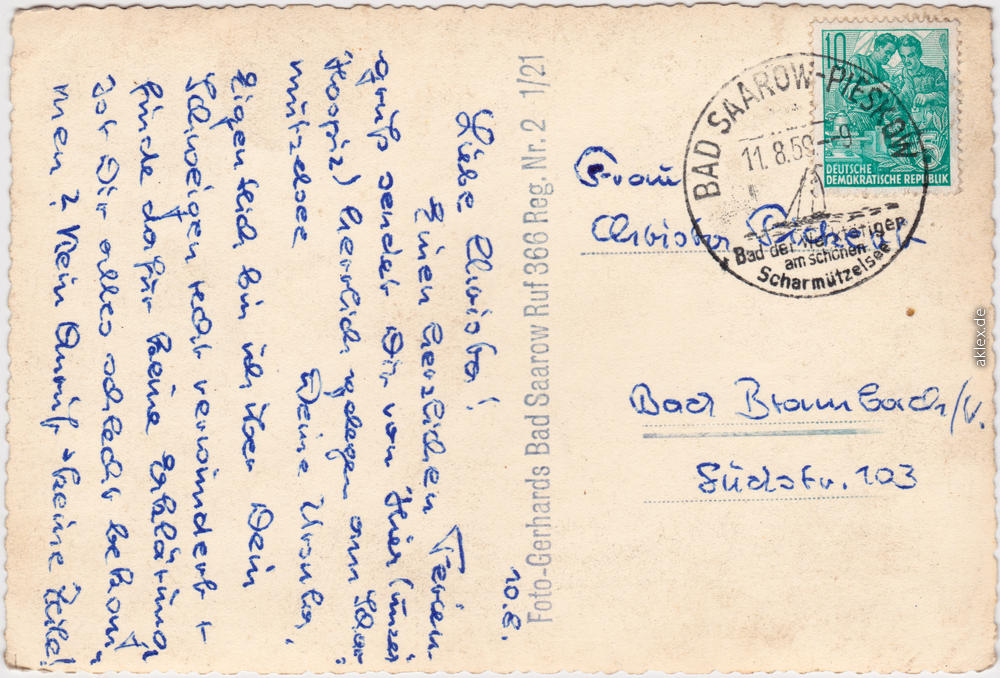 10.8.
Liebe Christa!
Einen herzlichen Ferien-
gruß sendet Dir von hier (unser
Hospiz) herrlich gelegen am Schar-
mützelsee Deine Ursula.
Eigentlich bin ich über Dein
Schweigen recht verwundert +
finde dafür keine Erklärung,
Ist Dir alles schlecht bekom-
men? Kein Anruf + keine Zeile!
Foto-Gerhards Bad Saarow Ruf 366 Reg. Nr. 2 - 1/21
10
DEUTSCHE
DEMOKRATISCHE REPUBLIK
BAD SAAROW-PIESKOW
11.8.59.--9
Bad der Werktätigen
am schönen
Scharmützelsee
Frau
Christa
Bad Brambach/V.
Südstr. 103
aklex.de